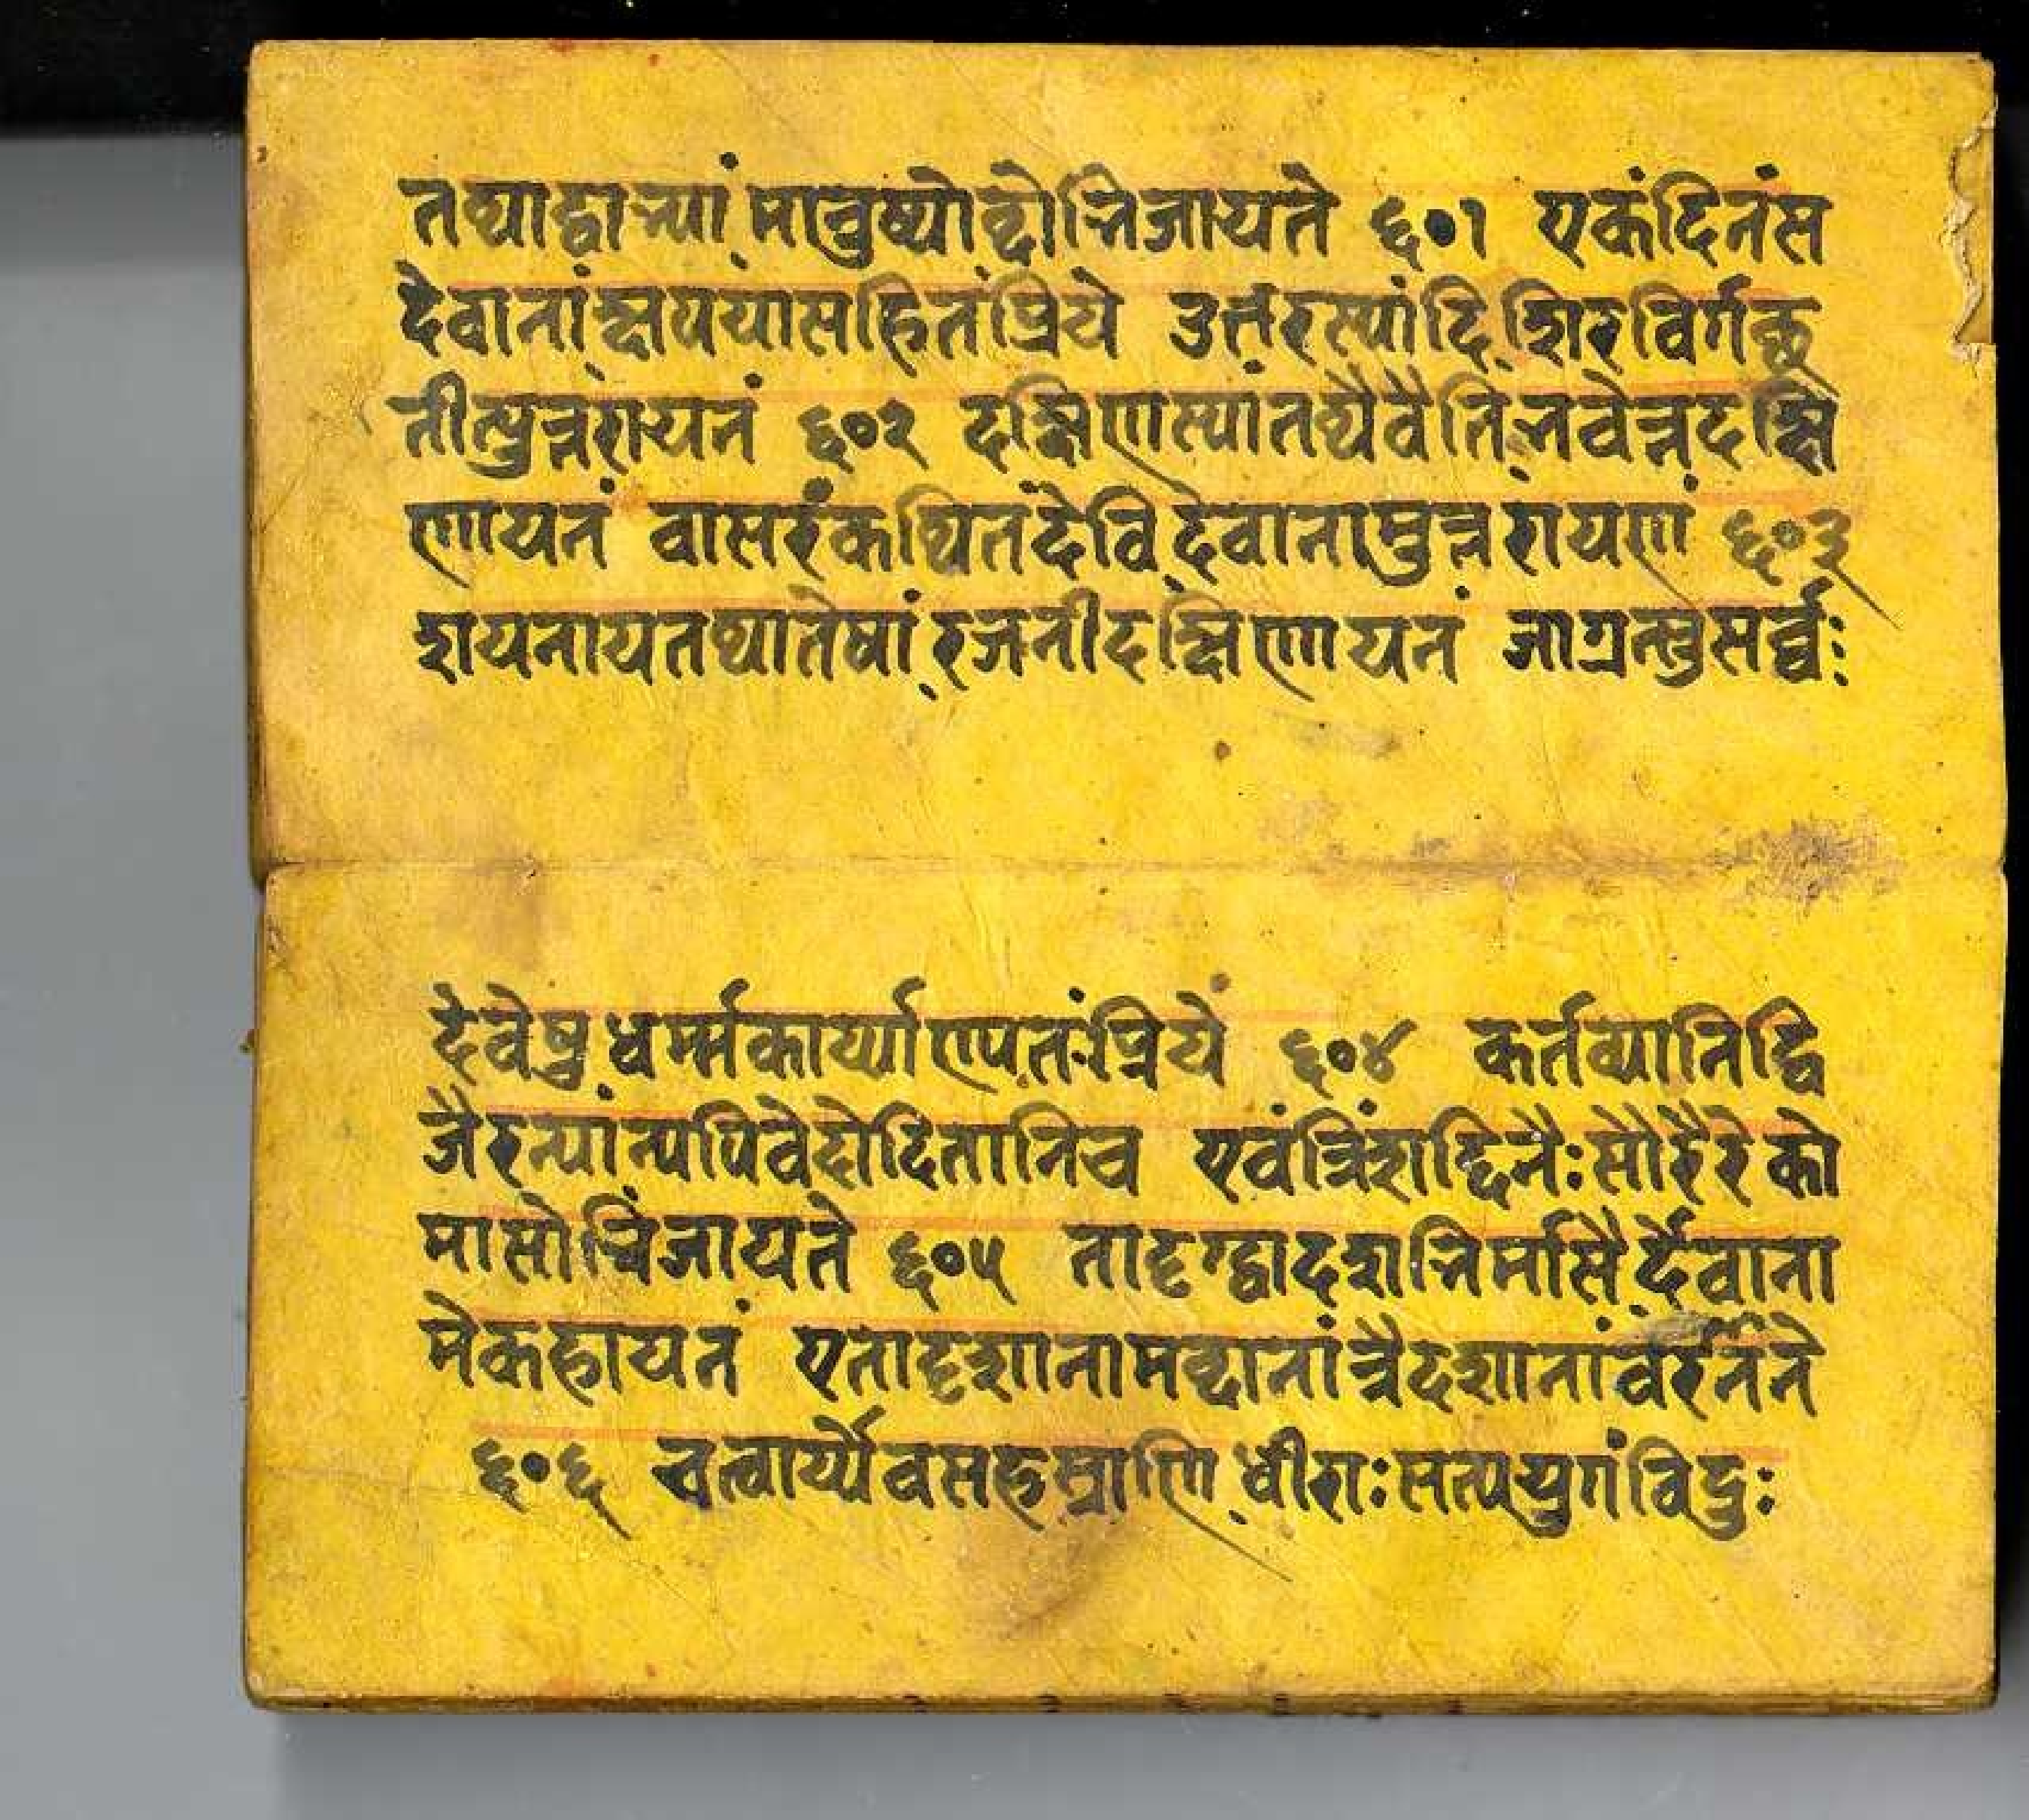 तथाद्वाभ्यां मानुष्योब्दोभिजायते ६०१ एकंदिनंस
देवानांक्षपयासहितंप्रिये उत्तरस्यांदिशिरविर्गच्छ
तीत्युत्तरायनं ६०२ दक्षिणस्यांतथैवैतिभवेत्तद्दक्षि
णायनं वासरंकथितंदेविदेवानामुत्तरायणं ६०३
शयनायतथातेषांरजनीदक्षिणायनं जाग्रत्सुसर्व्व
देवेषुधर्म्मकार्य्याण्यतःप्रिये ६०४ कर्तव्यानिद्वि
जैरन्यांन्यपिवेदोदितानिच एवंत्रिंशद्दिनैःसौरैरेको
मासोभिजायते ६०५ तादृग्द्वादशभिर्मासैर्देवाना
मेकहायनं एतादृशानामब्दानांत्रैदशानांवरानने
६०६ चत्वार्य्येवसहस्राणिधीराःसत्ययुगंविदुः